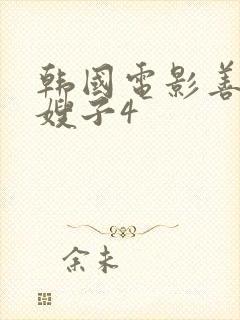 韩國電影善
嫂子4
余未